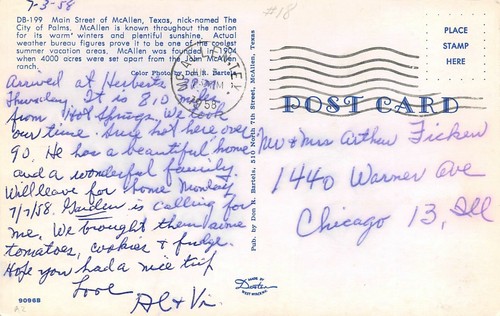 7-3-58
#18
DB-199 Main Street of McAllen, Texas, nick-named The
City of Palms. McAllen is known throughout the nation
for its warm winters and plentiful sunshine. Actual
weather bureau figures prove it to be one of the coolest
summer vacation areas. McAllen was founded in 1904
when 4000 acres were set apart from the John McAllen
ranch.
Color Photo by Don R. Bartels
Arrived at Herberts PM
Thursday. It is 810 miles
from Hot Springs. We took
our time. Sure hot here over
90. He has a beautiful home
and a wonderful family.
Will leave for home Monday
7/7/58. Garden is calling for
me. We brought them some
tomatoes, cookies & fudge.
Hope you had a nice trip
Love
Al & Vi
9096B
Pub. by Don R. Bartels, 510 North 7th Street, McAllen, Texas
PM
58
PLACE
STAMP
HERE
POST CARD
Mr & Mrs Arthur Ficken
1440 Warner Ave
Chicago 13, Ill
MADE BY
Dexter
WEST NYACK, N.Y.